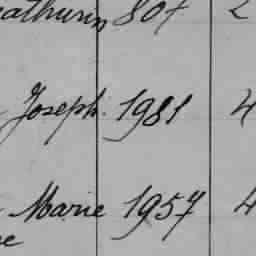 athurin 807 2
Joseph. 1981 4
Marie 1957 4